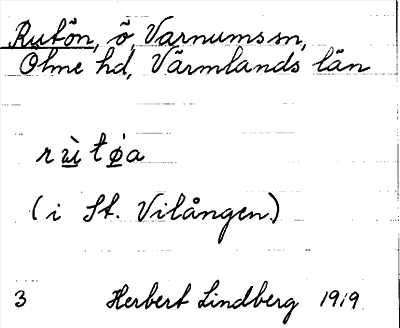 Rutön, ö, Varnums sn,
Olme hd, Värmlands län
(i St. Vilången)
3 Herbert Lindberg 1919